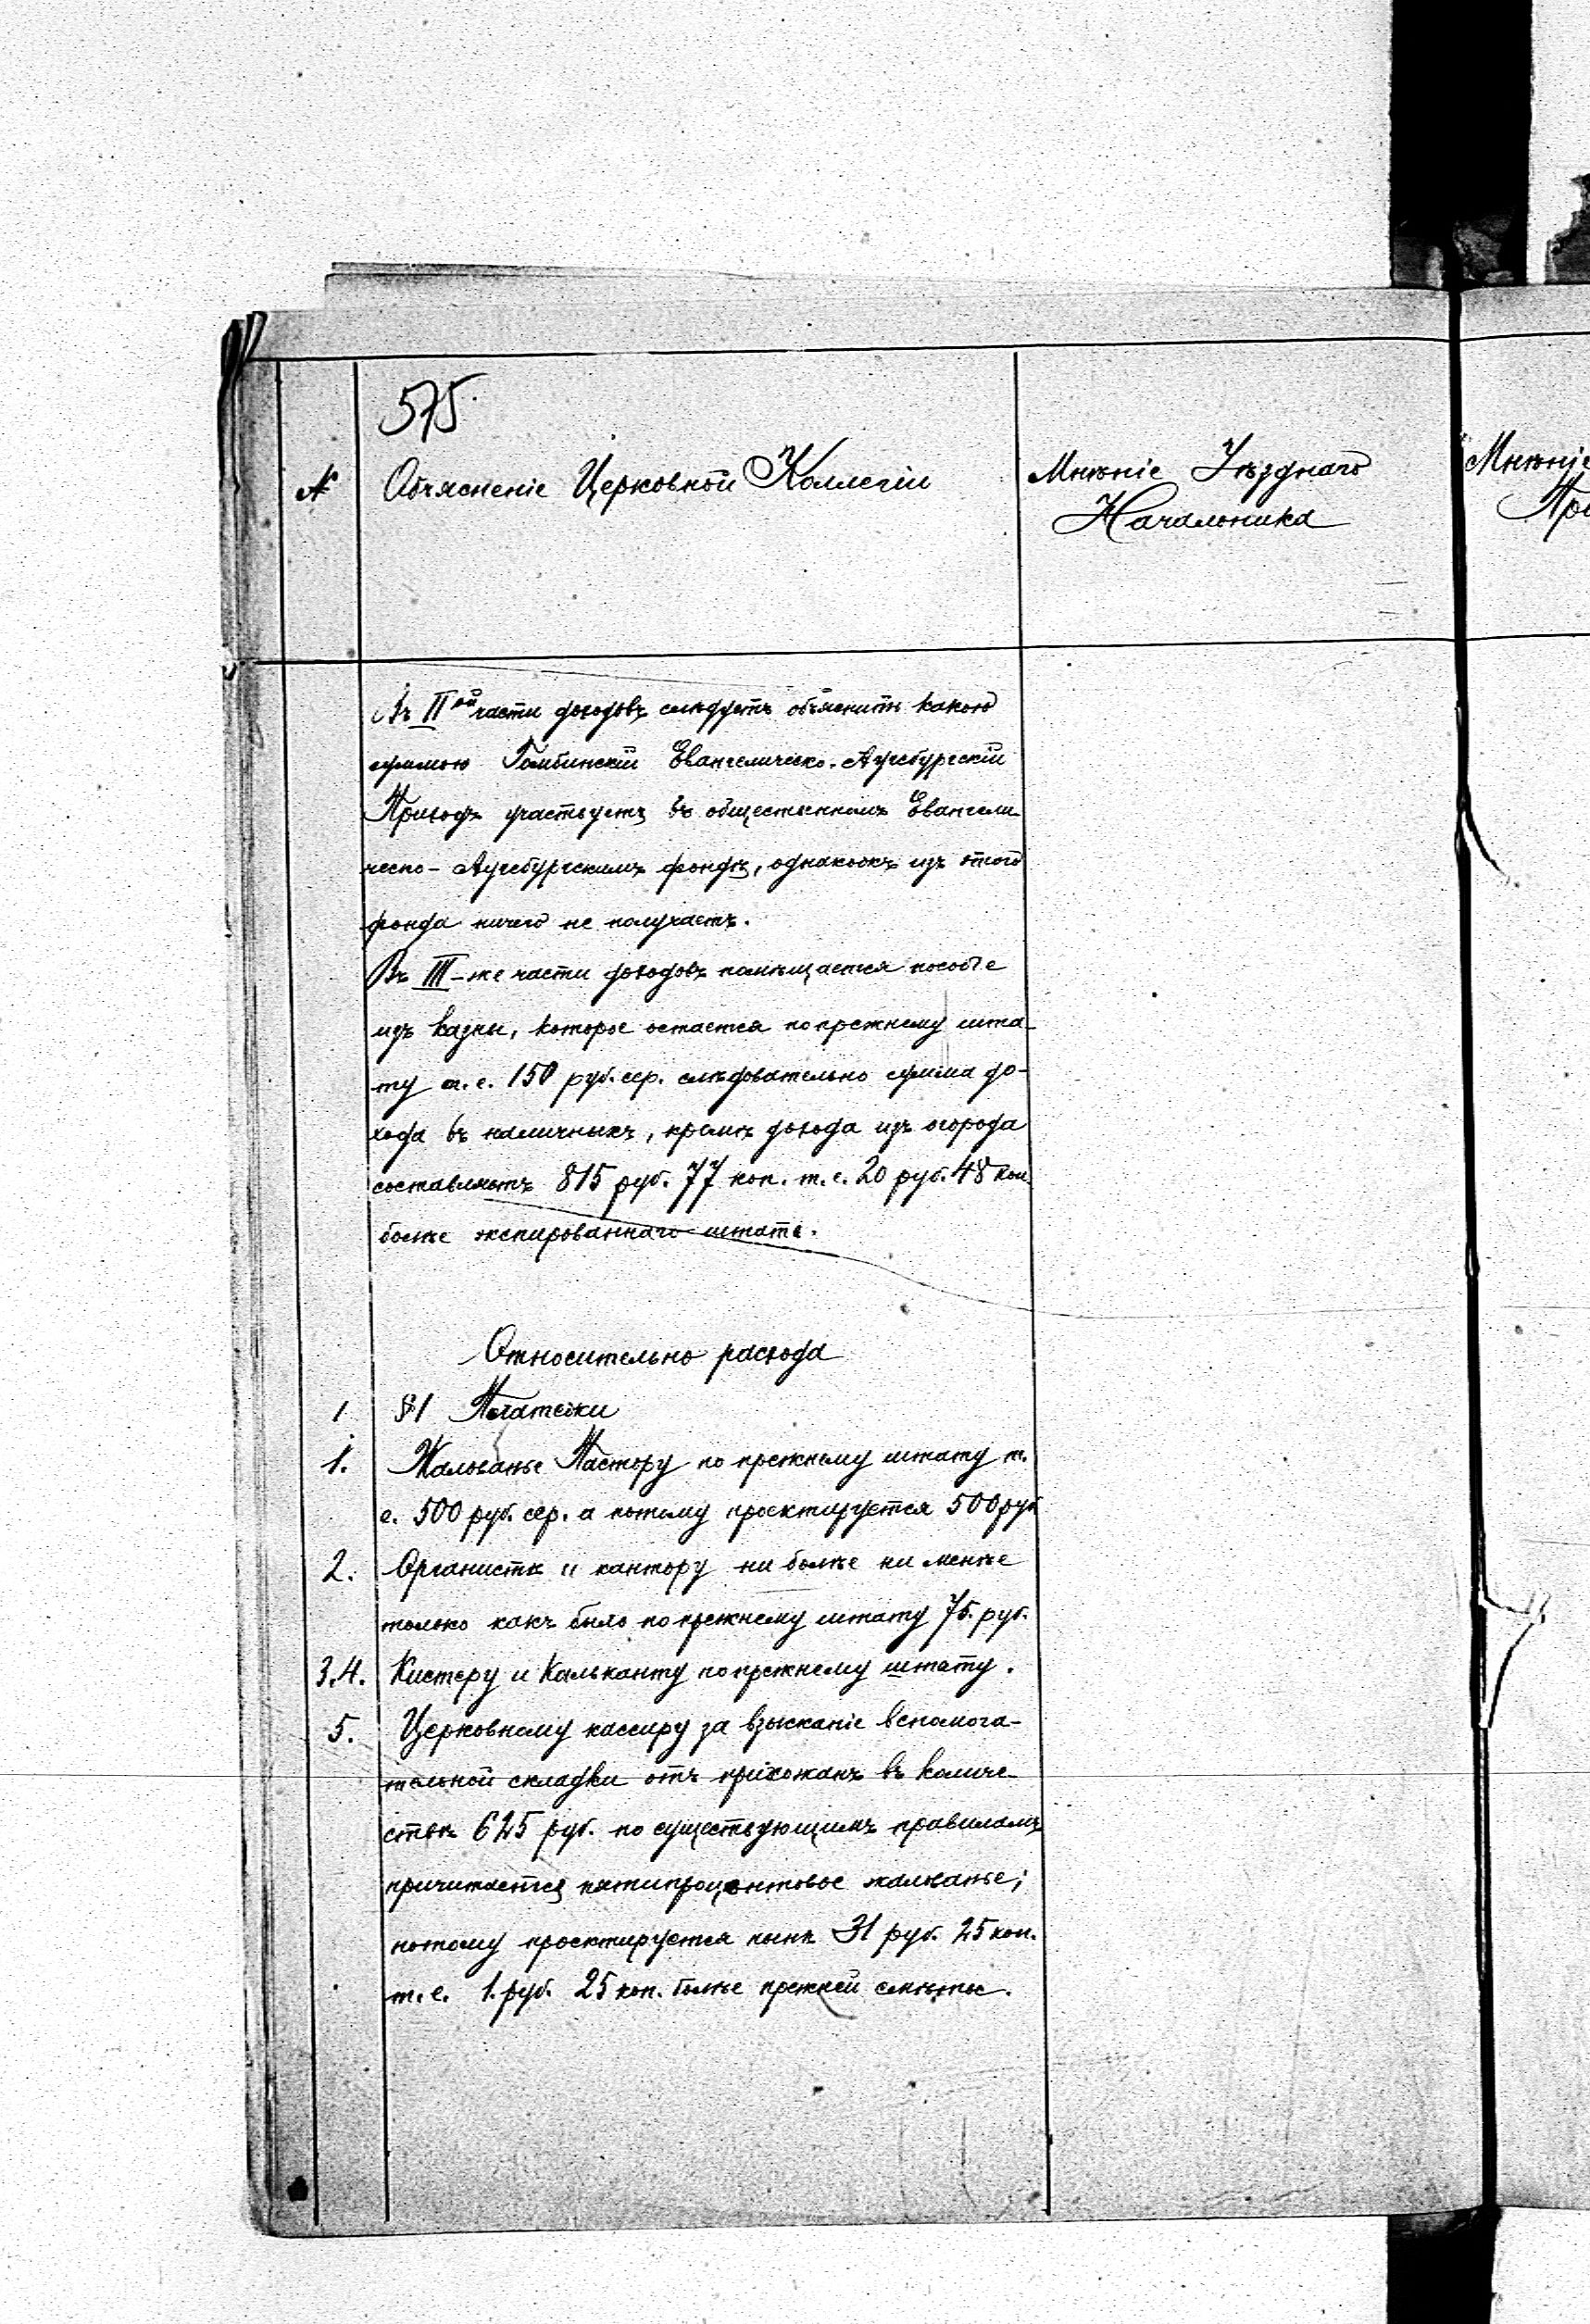 575.
№ Объясненіе Церковной Коллегіи
Мнѣніе Уѣзднаго
Начальника
Мнѣніе
Въ IIой части доходовъ слѣдуетъ объяснить какою
суммою Гомбинскій Евангелическо-Аугсбургскій
Приходъ участвуетъ въ общественномъ Евангели-
ческо-Аугсбургскимъ фондѣ, однакожъ изъ этого
фонда ничего не получаетъ.
Въ III-же части доходовъ помѣщается пособіе
изъ казны, которое остается по прежнему шта-
ту т.е. 150 руб. сер. слѣдовательно сумма до-
хода въ наличныхъ, кромѣ дохода изъ огорода
составляетъ 815 руб. 77 коп. т.е. 20 руб. 48 коп.
болѣе экспированнаго штата.
Относительно расхода
1 §1 Платежи
1. Жалованье Пастору по прежнему штату т.
е. 500 руб. сер. а потому проектируется 500 руб
2. Органистѣ и кантору ни болѣе ни менѣе
только какъ было по прежнему штату 75. руб.
3.4. Кистеру и Кальканту по прежнему штату.
5. Церковному кассиру за взысканіе вспомога-
тельной складки отъ прихожанъ въ количе-
ствѣ 625 руб. по существующимъ правиламъ
причитается пятипроцентовое жалованье;
потому проектируется нынѣ 31 руб. 25 коп.
т.е. 1. руб. 25 коп. болѣе прежней смѣты.